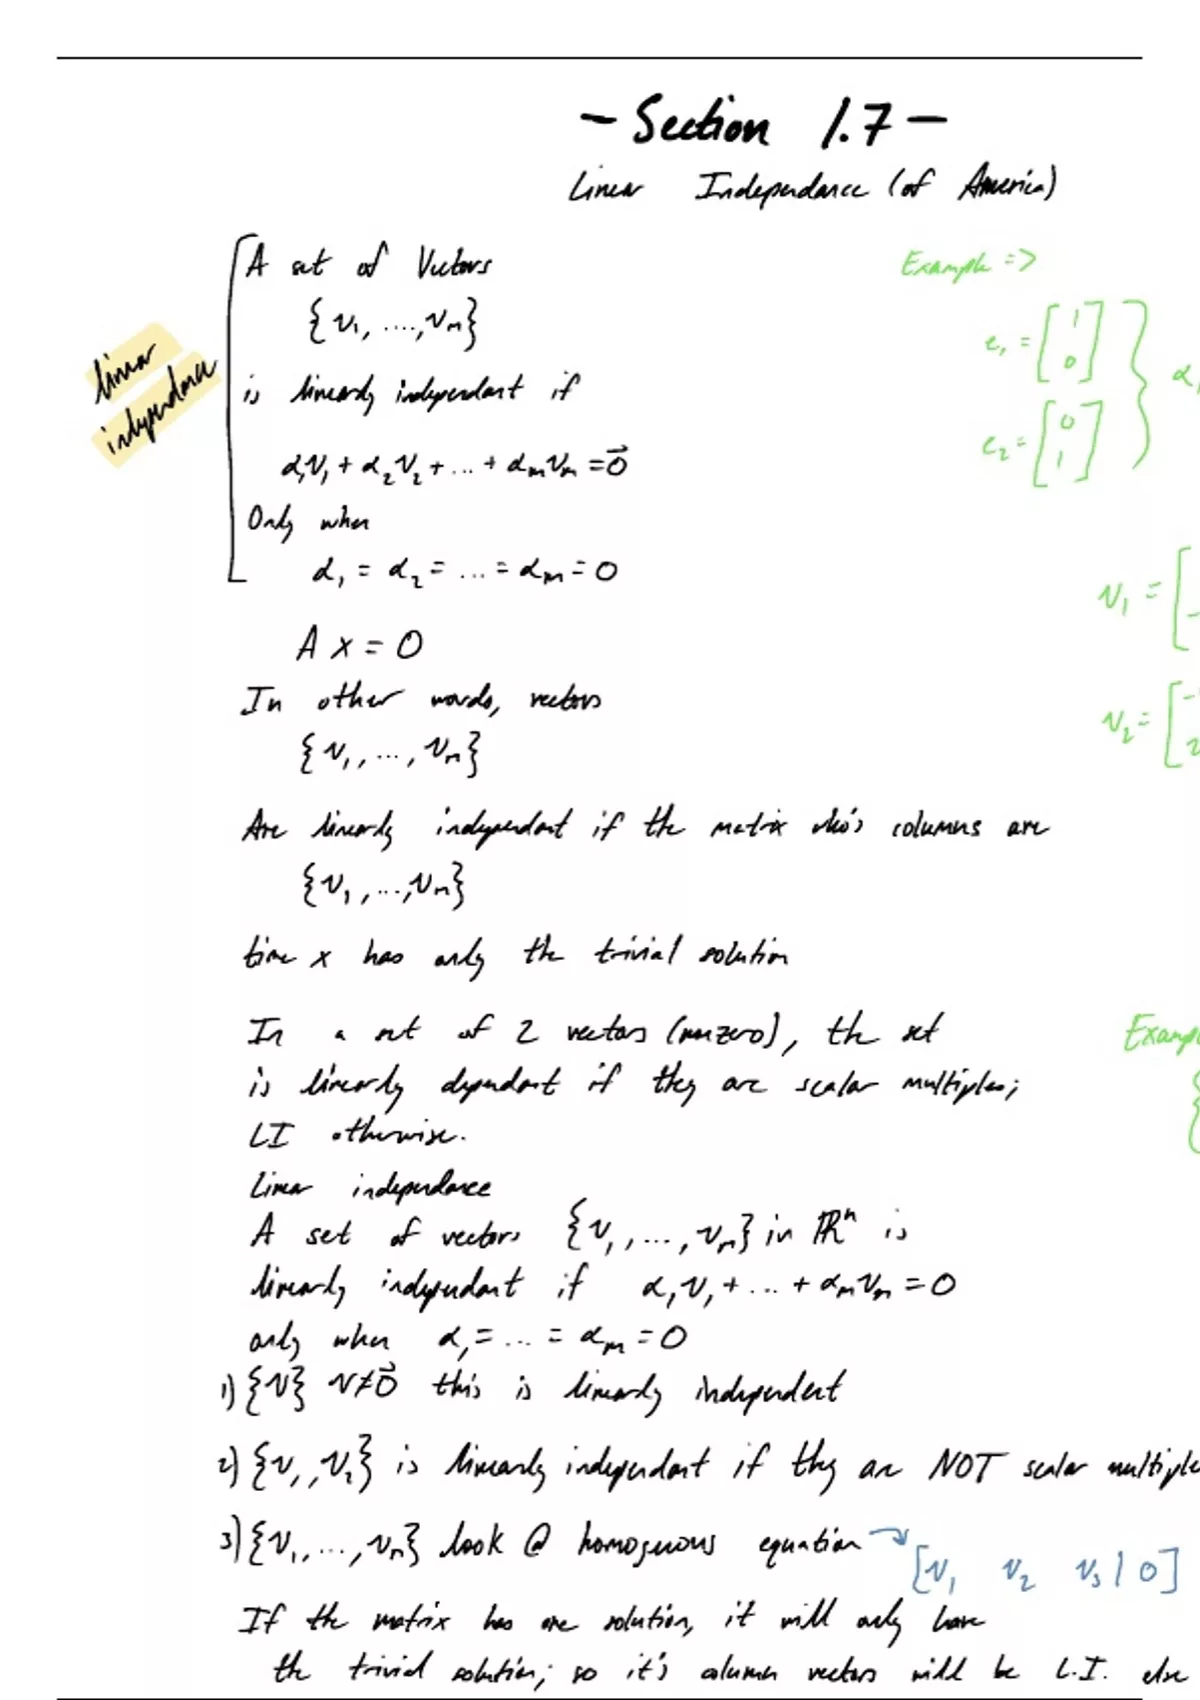 - Section 1.7 -
Linear Independance (of America)
linear
independance
A set of Vectors
{v₁, ....,vₘ}
is linearly independant if
α₁v₁ + α₂v₂ + ... + αₘvₘ = 0⃗
Only when
α₁ = α₂ = ... = αₘ = 0
Example =>
e₁ = [1 0]
e₂ = [0 1]
α₁
A x = 0
v₁ = [
In other words, vectors
{v₁, ..., vₘ}
v₂ = [
Are linearly independant if the matrix who's columns are
{v₁, ...,vₘ}
time x has only the trivial solution
In a set of 2 vectors (nonzero), the set
is linearly dependant if they are scalar multiples;
LI otherwise.
Example
{
Linear independance
A set of vectors {v₁, ..., vₘ} in ℝⁿ is
linearly independant if α₁v₁ + ... + αₘvₘ = 0
only when α₁ = ... = αₘ = 0
1) {v} v≠0⃗ this is linearly independent
2) {v₁, v₂} is linearly independant if they are NOT scalar multiple
3) {v₁, ..., vₘ} look @ homogenous equation →
[v₁ v₂ v₃ | 0]
If the matrix has one solution, it will only have
the trivial solution; so it's column vectors will be L.I. else